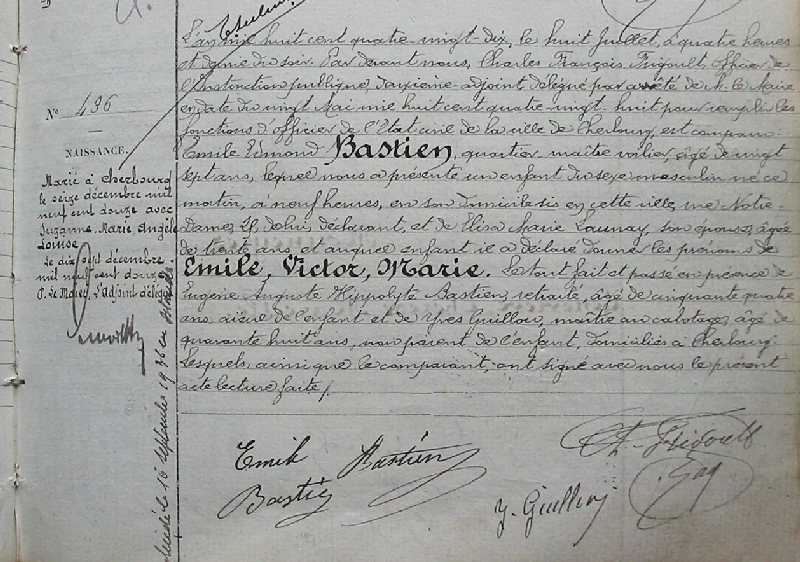 L'an mil huit cent quatre-vingt dix, le huit Juillet, à quatre heures
et demie du soir. Par devant nous, Charles François Frigoult, officier de
l'Instruction publique, deuxième adjoint délégué par arrêté de M. le Maire
en date du vingt Mai mil huit cent quatre-vingt-huit pour remplir les
fonctions d'officier de l'Etat civil de la ville de Cherbourg, est comparu:
Emile Edmond Bastien, quartier-maître voilier, âgé de vingt
sept ans, lequel nous a présenté un enfant du sexe masculin né ce
matin, à neuf heures, en son domicile sis en cette ville, rue Notre-
Dame, de lui déclarant, et de Elisa Marie Launay, son épouse, âgée
de trente ans, et auquel enfant il a déclaré donner les prénoms de
Emile, Victor, Marie. Le tout fait et passé en présence de
Eugène Auguste Hippolyte Bastien, retraité, âgé de cinquante quatre
ans, aïeul de l'enfant et de Yves Guillou, maître au cabotage, âgé de
quarante huit ans, non parent de l'enfant, domiciliés à Cherbourg.
Lesquels, ainsi que le comparant, ont signé avec nous le présent
acte lecture faite.
N° 436
NAISSANCE.
Marié à Cherbourg
le seize décembre mil
neuf cent douze avec
Suzanne, Marie, Angèle
Louise
Le dix sept décembre
mil neuf cent douze
P. Le Maire, L'adjoint délégué
décédé le 16 septembre 1936
Emile Bastien
Bastien
Y. Guillou